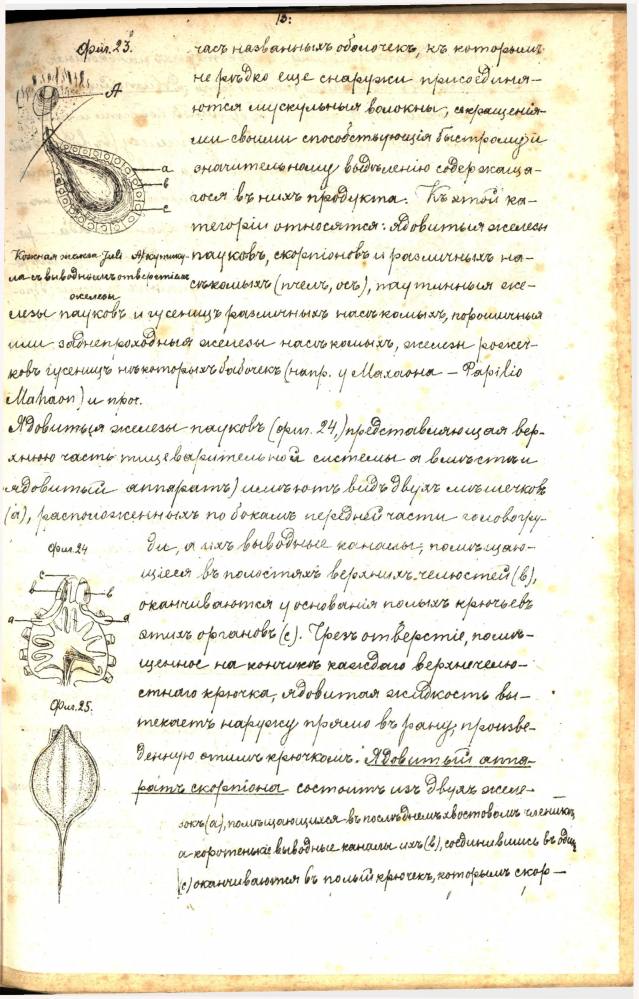 13:
Фиг. 23.
A
a
в
c
часъ названныхъ оболочекъ, къ которымъ
не рѣдко еще снаружи присоединя-
ются мускульныя волокны, сокращенія-
ми своими способствующія быстрому и
значительному выдѣленію содержаща-
гося въ нихъ продукта. Къ этой ка-
тегоріи относятся: ядовитыя железы
пауковъ, скорпіоновъ и различныхъ на-
сѣкомыхъ (пчелъ, осъ), паутинныя же-
Кожная железа Juli А кутику-
ла съ выводнымъ отверстіемъ
железы
лезы пауковъ и гусеницъ различныхъ насѣкомыхъ, порошичныя
или заднепроходныя железы насѣкомыхъ, железы рожеч-
ковъ гусеницъ нѣкоторыхъ бабочекъ (напр. у Махаона — Papilio
Mahaon) и проч.
Ядовитыя железы пауковъ (фиг. 24,) представляющая вер-
хнюю часть пищеварительной системы а вмѣстѣ и
ядовитый аппаратъ) имѣютъ видъ двухъ мѣшечковъ
(а), расположенныхъ по бокамъ передней части головогру-
ди, а ихъ выводные каналы, помѣщаю-
щіеся въ полостяхъ верхнихъ челюстей (в),
оканчиваются у основанія полыхъ крючьевъ
этихъ органовъ (с). Чрезъ отверстіе, помѣ-
щенное на кончикѣ каждаго верхнечелю-
стнаго крючка, ядовитая жидкость вы-
текаетъ наружу прямо въ рану, произве-
денную этимъ крючкомъ. Ядовитый аппа-
ратъ скорпіона состоитъ изъ двухъ желе-
зокъ (а), помѣщающихся въ послѣднемъ хвостовомъ членикѣ,
а коротенькіе выводные каналы ихъ (в), соединившись въ одинъ
(с) оканчиваются въ полый крючекъ, которымъ скор—
Фиг. 24
c
в
в
a
a
Фиг. 25.